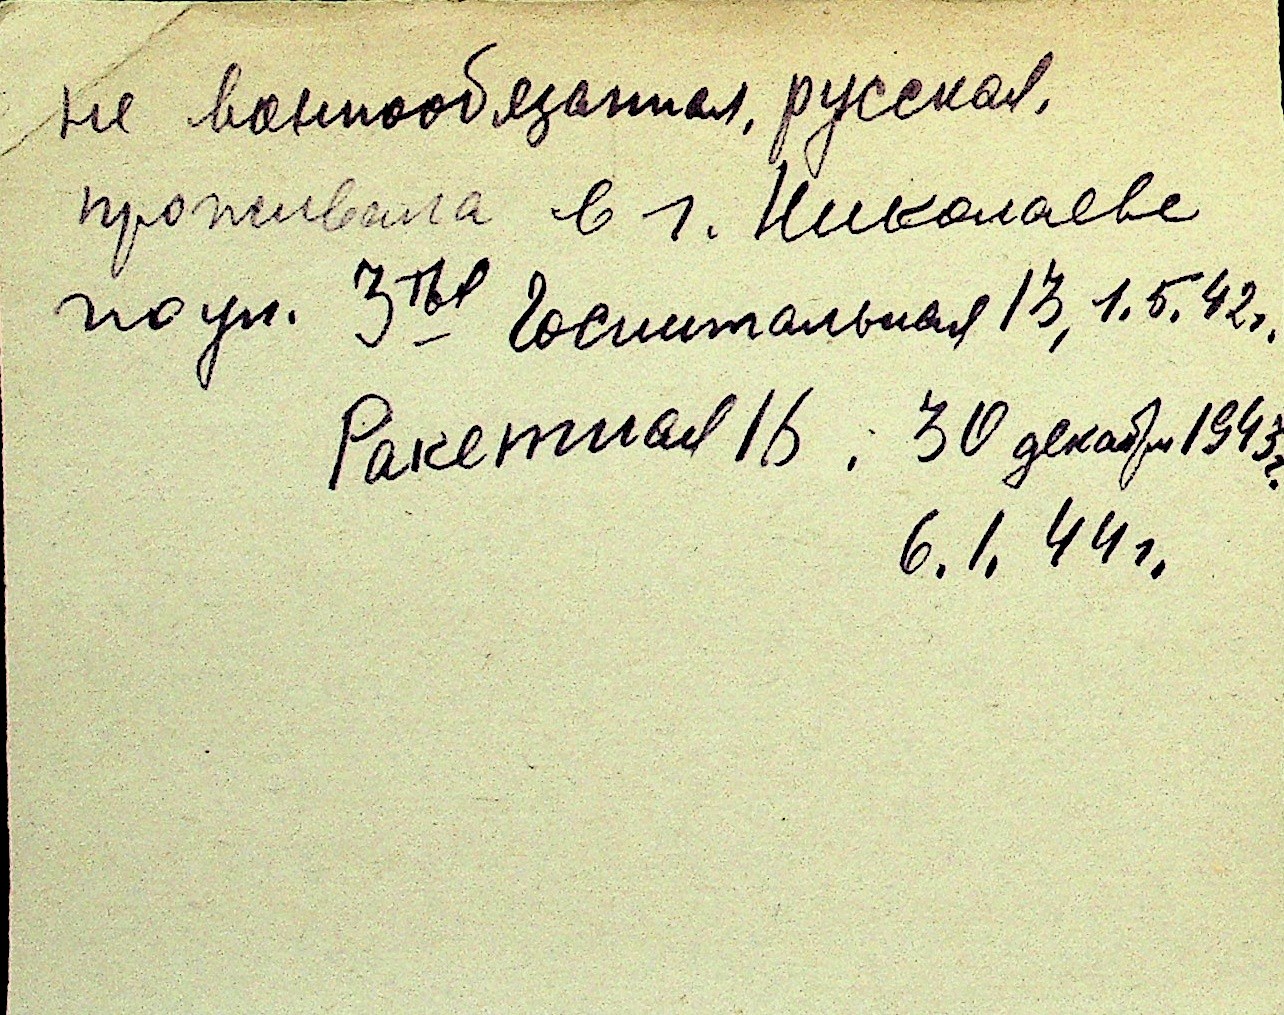 не военнообязанная, русская.
проживала в г. Николаеве
по ул. 3тья Госпитальная 13, 1.5.42г.
Ракетная 15 . 30 декабря 1943г.
6.1.44г.